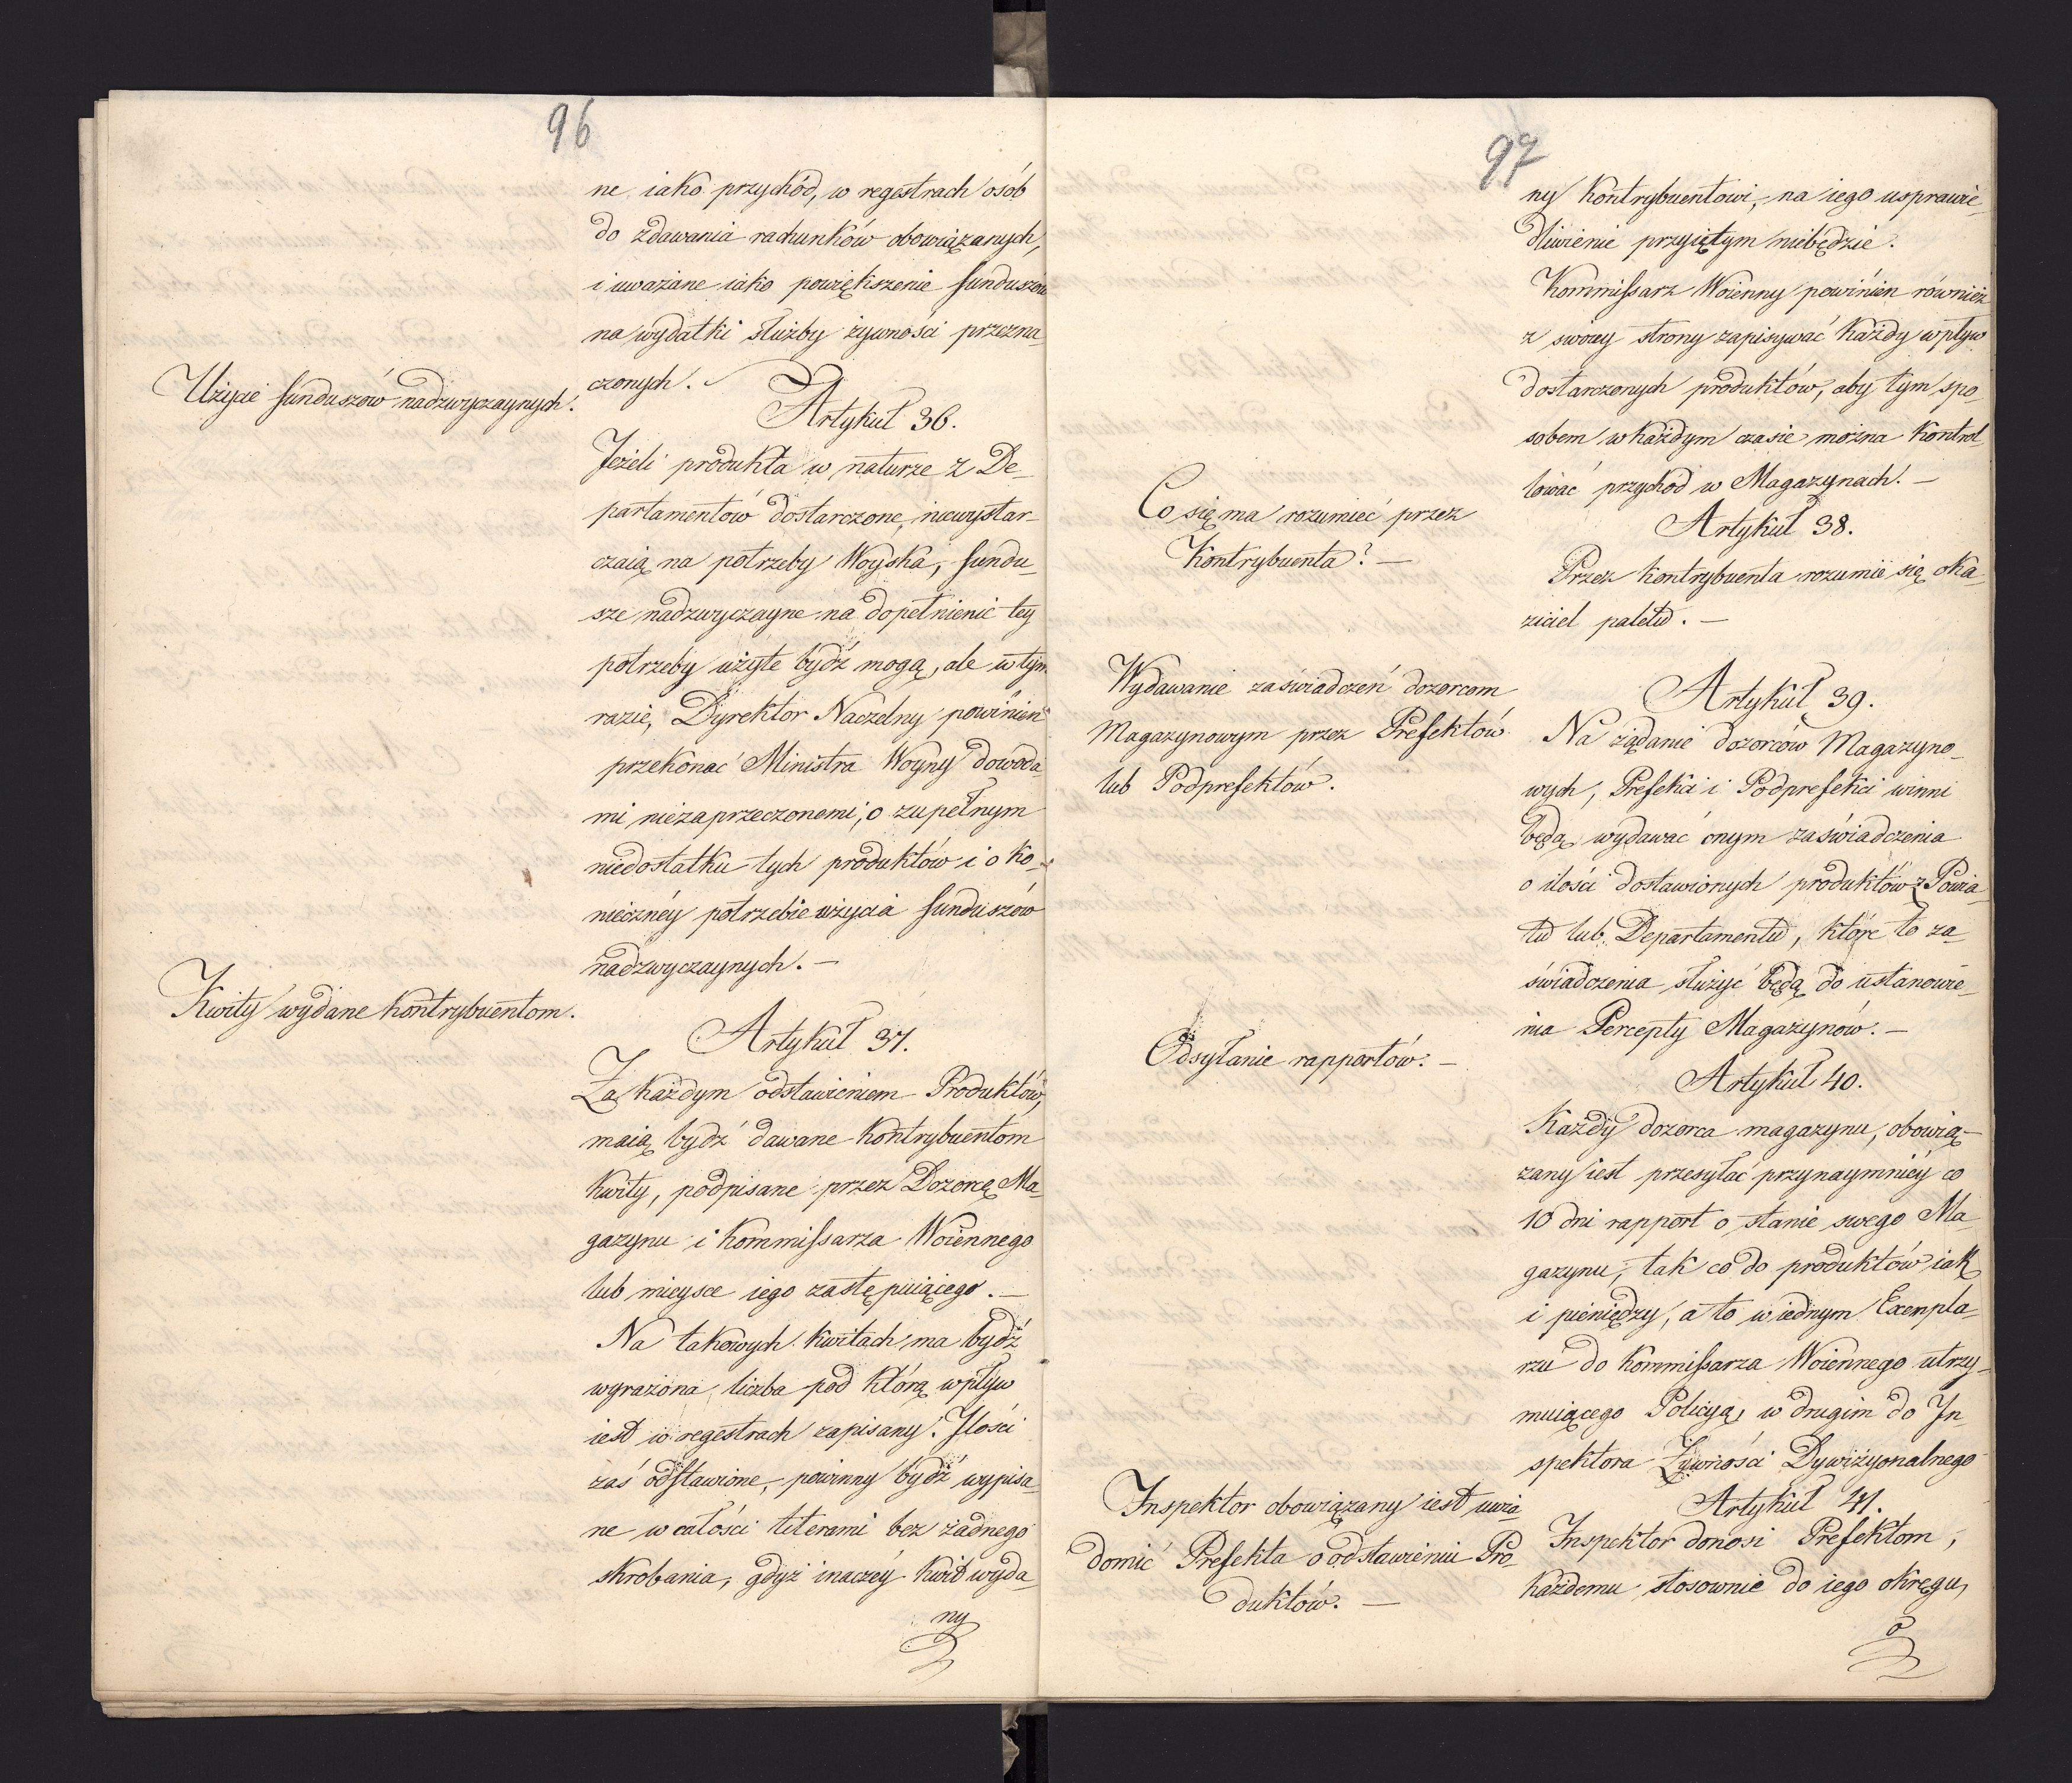 96
ne iako przychód, w regestrach osób
do zdawania rachunków obowiązanych,
i uważane iako powiększenie funduszów
na wydatki służby żywności przezna_
czonych.
Użycie funduszów nadzwyczaynych.
Artykuł 36.
Jeżeli produkta w naturze z De_
partamentów dostarczone, niewystar_
czaią na potrzeby Woyska, fundu_
sze nadzwyczayne na dopełnienie tey
potrzeby użyte bydź mogą, ale w tym
razie, Dyrektor Naczelny powinien
przekonać Ministra Woyny dowoda
mi niezaprzeczonemi, o zupełnym
niedostatku tych produktów i o ko_
nieczney potrzebie użycia funduszów
nadzwyczaynych. _
Kwity wydane kontrybuentom.
Artykuł 37.
Za każdym odstawieniem Produktów,
maią bydź dawane kontrybuentom
kwity, podpisane przez Dozorcę Ma_
gazynu i Kommissarza Woiennego
lub mieysce iego zastępuiącego. _
Na takowych kwitach ma bydź
wyrażona liczba pod którą wpływ
iest w regestrach zapisany. Jlości
zaś odstawione, powinny bydź wypisa_
ne w całości literami bez żadnego
skrobania, gdyż inaczey kwit wyda_
ny
97
ny kontrybuentowi, na iego usprawie_
dliwienie przyiętym niebędzie.
Kommissarz Woienny powinien również
z swoiey strony zapisywać każdy wpływ
dostarczonych produktów, aby tym spo_
sobem w każdym czasie można kontrol
lować przychód w Magazynach. _
Co się ma rozumieć przez
Kontrybuenta? _
Artykuł 38.
Przez kontrybuenta rozumie się oka_
ziciel paletu. _
Wydawanie zaświadczeń dozorcom
Magazynowym przez Prefektów
lub Podprefektów.
Artykuł 39.
Na żądanie dozorców Magazyno_
wych, Prefekci i Podprefekci winni
będą wydawać onym zaświadczenia
o ilości dostawionych produktów z Powia_
tu lub Departamentu, które to za_
świadczenia służyć będą do ustanowie_
nia Percepty Magazynów. _
Odsyłanie rapportów. _
Artykuł 40.
Każdy dozorca magazynu, obowią_
zany iest przesyłać przynaymniey co
10 dni rapport o stanie swego Ma_
gazynu, tak co do produktów iak
i pieniędzy, a to w iednym Exempla_
rzu do Kommissarza Woiennego utrzy_
muiącego Policyą, w drugim do In_
spektora Żywności Dywizyonalnego
Inspektor obowiązany iest uwia
domić Prefekta o odstawieniu Pro_
duktów. _
Artykuł 41.
Inspektor donosi Prefektom,
każdemu stosownie do iego okręgu,
o